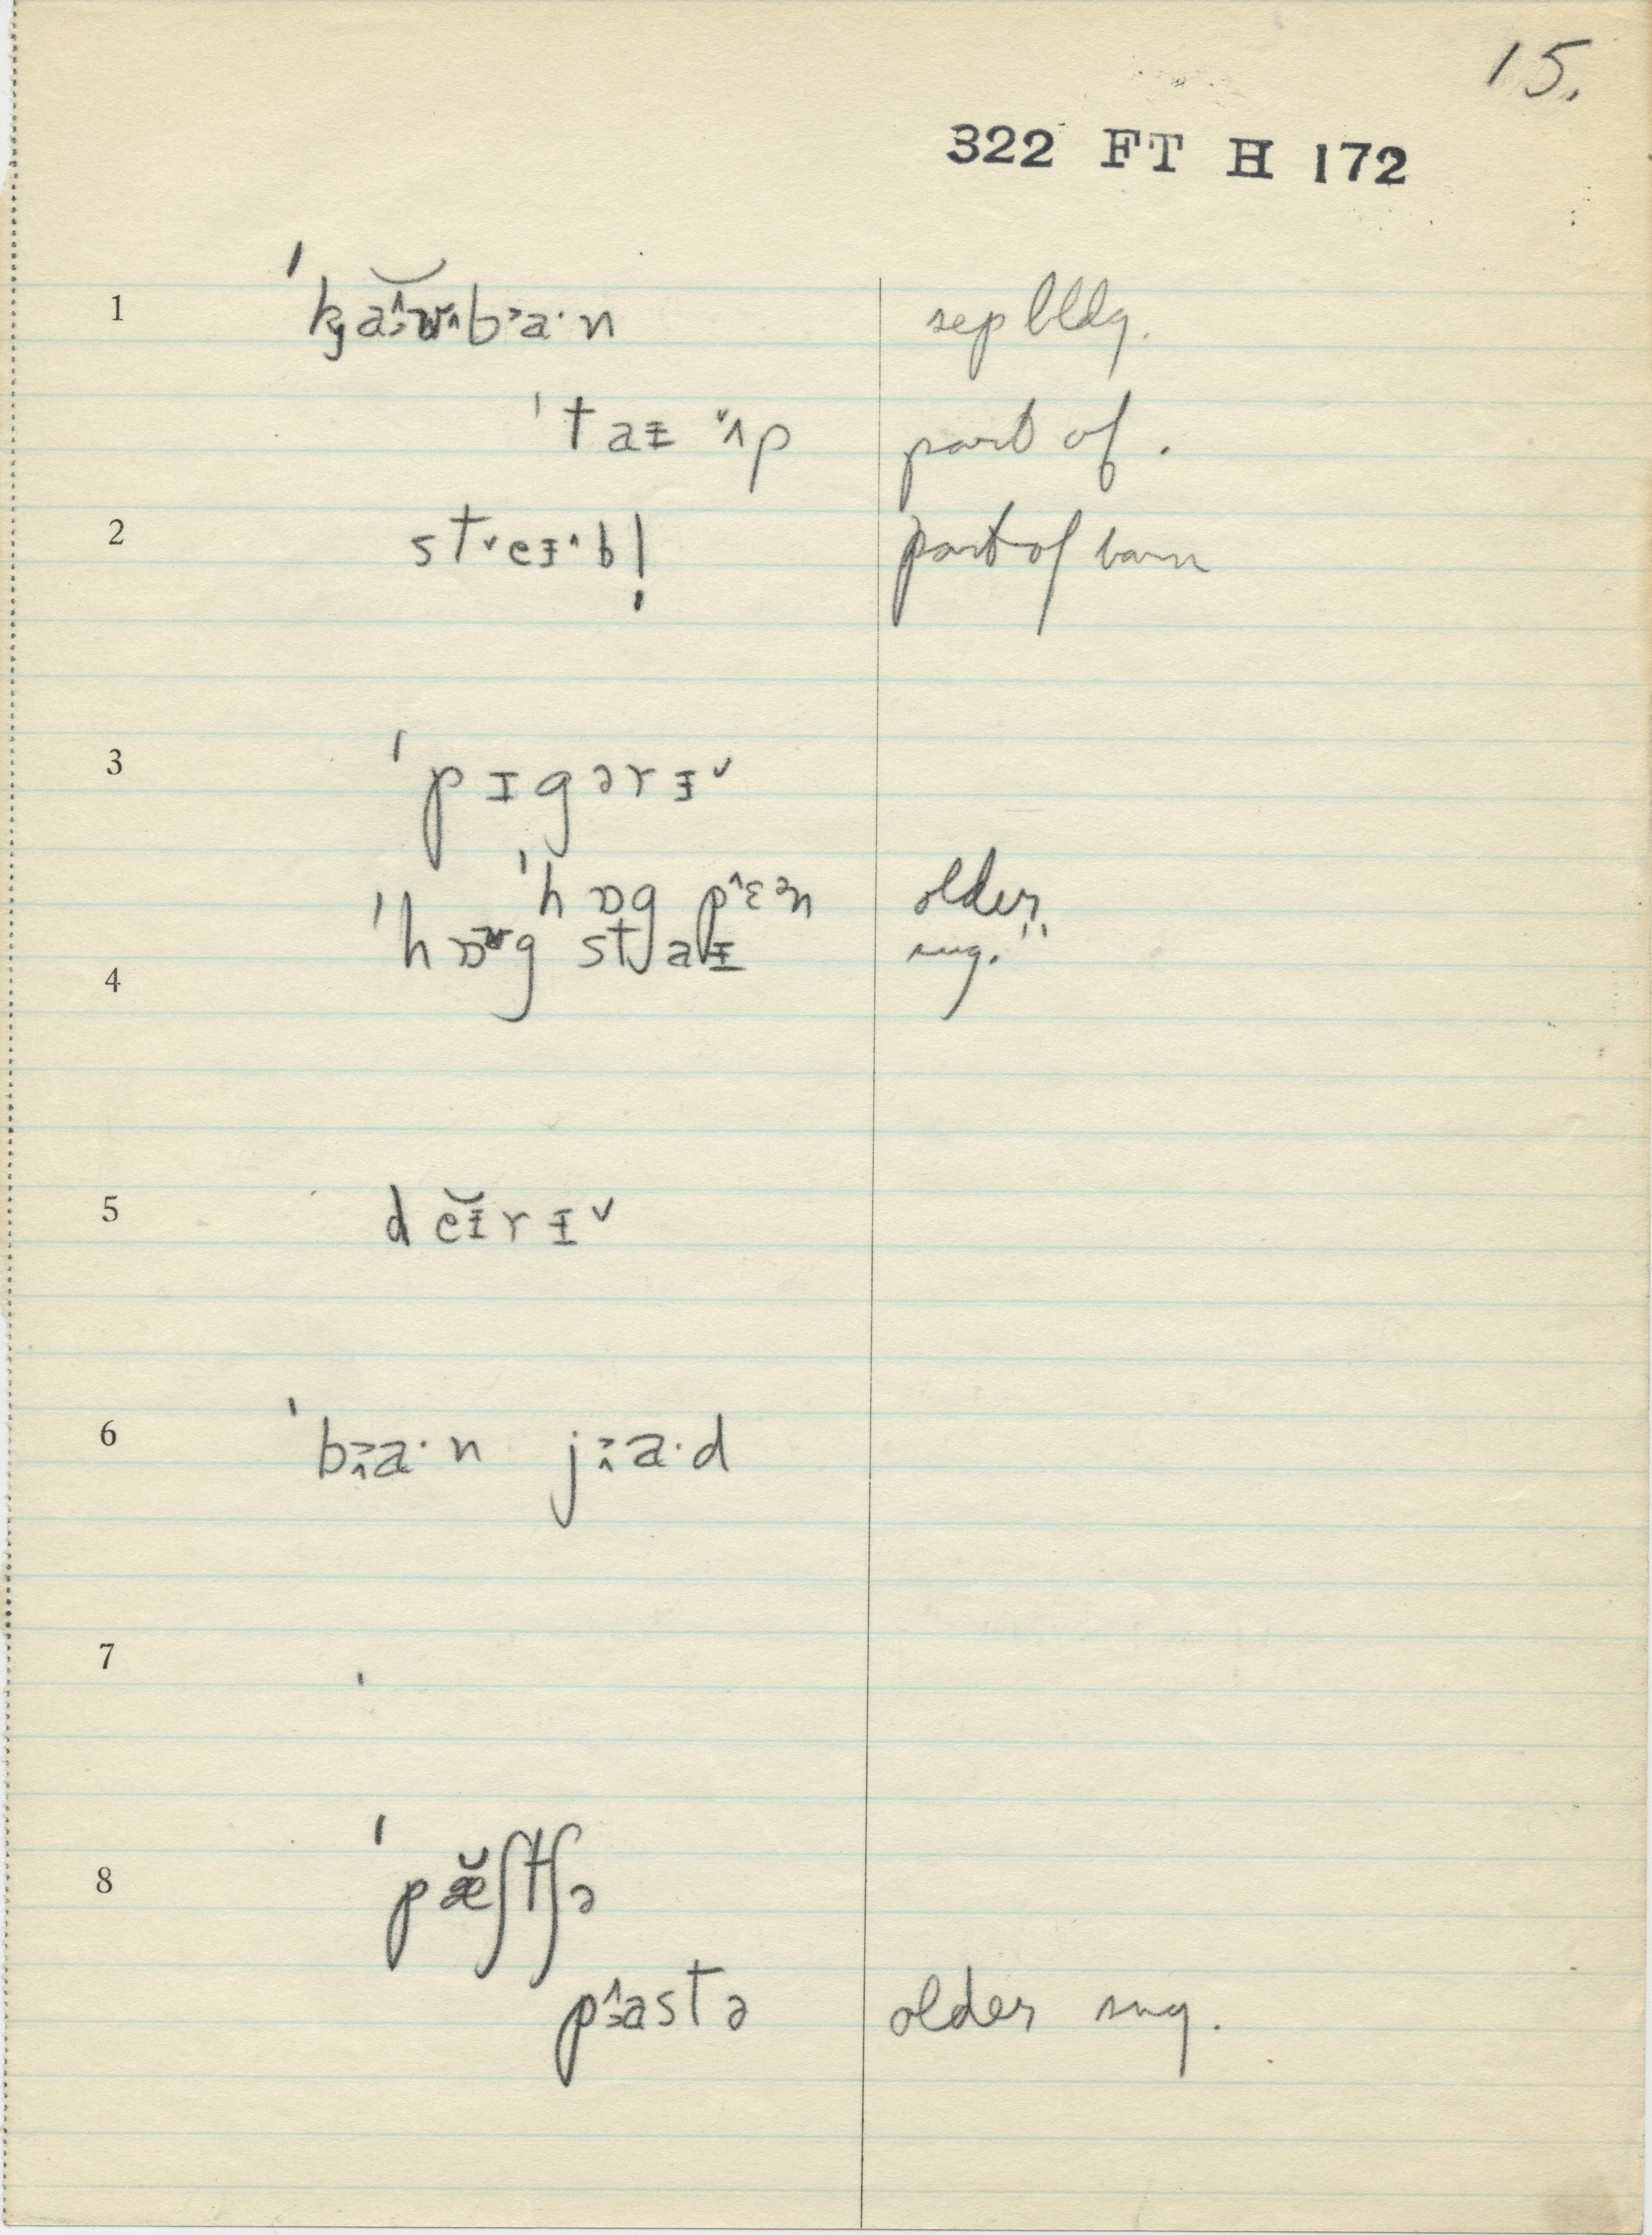 15.
322 FT H 172
1 ˈkj a̯ʊ^b˃a·n sep bldg.
ˈtaɪ ˇʌp part of.
2 stˇeɪ^bl̩ part of barn
3 ˈpɪgərɪˇ
ˈhɒg p^ɛən older
4 ˈhɒg staɪ sug."
5 deɪ̆rɪˇ
6 ˈba·n ja·d
7 ˈ
8 ˈpæ̆ʃtʃə
pastə older sug.